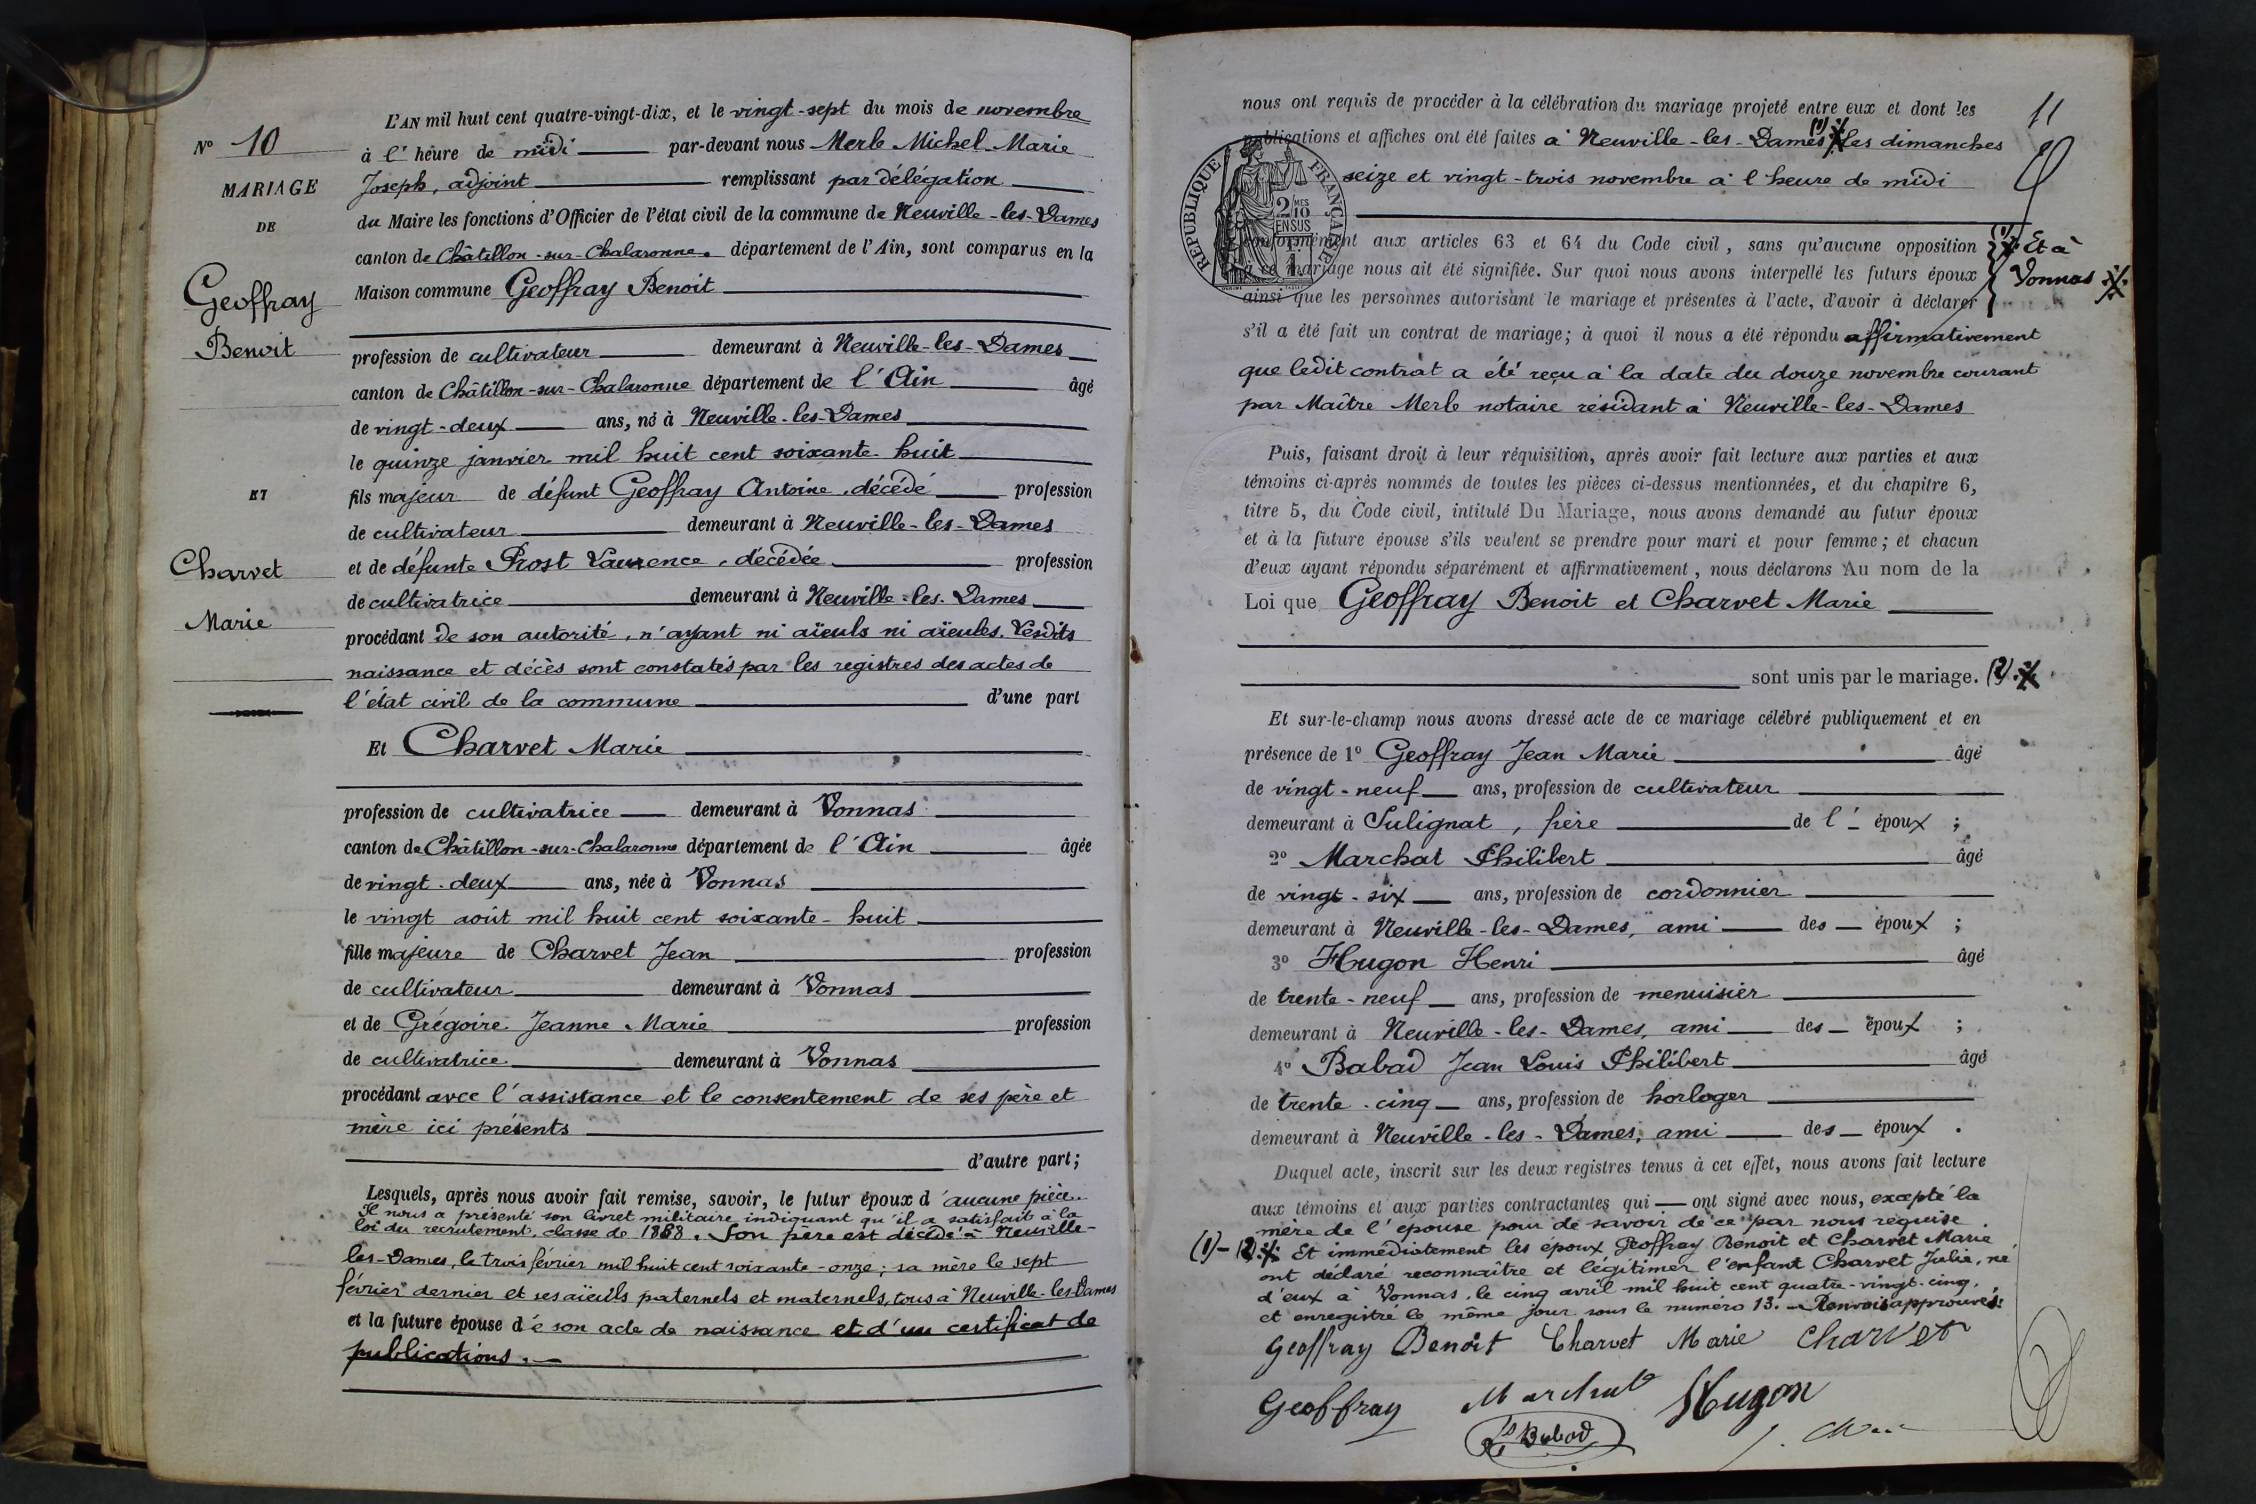 N° 10
MARIAGE
DE
Geoffray
Benoit
ET
Charvet
Marie
L'AN mil huit cent quatre-vingt-dix, et le vingt-sept du mois de novembre
à l'heure de midi par-devant nous Merle Michel Marie
Joseph, adjoint remplissant par délégation
du Maire les fonctions d'Officier de l'état civil de la commune de Neuville-les-Dames
canton de Châtillon-sur-Chalaronne. département de l'Ain, sont comparus en la
Maison commune Geoffray Benoit
profession de cultivateur demeurant à Neuville-les-Dames
canton de Châtillon-sur-Chalaronne département de l'Ain âgé
de vingt-deux ans, né à Neuville-les-Dames
le quinze janvier mil huit cent soixante-huit
fils majeur de défunt Geoffray Antoine, décédé profession
de cultivateur demeurant à Neuville-les-Dames
et de défunte Prost Laurence, décédée profession
de cultivatrice demeurant à Neuville-les-Dames
procédant de son autorité, n'ayant ni aïeuls ni aïeules. Lesdits
naissance et décès sont constatés par les registres des actes de
l'état civil de la commune d'une part
Et Charvet Marie
profession de cultivatrice demeurant à Vonnas
canton de Châtillon-sur-Chalaronne département de l'Ain âgée
de vingt-deux ans, née à Vonnas
le vingt août mil huit cent soixante-huit
fille majeure de Charvet Jean profession
de cultivateur demeurant à Vonnas
et de Grégoire Jeanne Marie profession
de cultivatrice demeurant à Vonnas
procédant avec l'assistance et le consentement de ses père et
mère ici présents
d'autre part;
Lesquels, après nous avoir fait remise, savoir, le futur époux d'aucune pièce.
Il nous a présenté son livret militaire indiquant qu'il a satisfait à la
loi du recrutement, classe de 1888. Son père est décédé à Neuville-
les-Dames, le trois février mil huit cent soixante-onze; sa mère le sept
février dernier et ses aïeuls paternels et maternels, tous à Neuville-les-Dames
et la future épouse de son acte de naissance et d'un certificat de
publications.
11
nous ont requis de procéder à la célébration du mariage projeté entre eux et dont les
publications et affiches ont été faites à Neuville-les-Dames (1) les dimanches
seize et vingt-trois novembre à l'heure de midi
RÉPUBLIQUE FRANÇAISE
2/10 MES
EN SUS
conformément aux articles 63 et 64 du Code civil, sans qu'aucune opposition
à ce mariage nous ait été signifiée. Sur quoi nous avons interpellé les futurs époux
ainsi que les personnes autorisant le mariage et présentes à l'acte, d'avoir à déclarer
(1) Et à
Vonnas
s'il a été fait un contrat de mariage; à quoi il nous a été répondu affirmativement
que ledit contrat a été reçu à la date du douze novembre courant
par Maître Merle notaire résidant à Neuville-les-Dames
Puis, faisant droit à leur réquisition, après avoir fait lecture aux parties et aux
témoins ci-après nommés de toutes les pièces ci-dessus mentionnées, et du chapitre 6,
titre 5, du Code civil, intitulé Du Mariage, nous avons demandé au futur époux
et à la future épouse s'ils veulent se prendre pour mari et pour femme; et chacun
d'eux ayant répondu séparément et affirmativement, nous déclarons Au nom de la
Loi que Geoffray Benoit et Charvet Marie
sont unis par le mariage. (2)
Et sur-le-champ nous avons dressé acte de ce mariage célébré publiquement et en
présence de 1° Geoffray Jean Marie âgé
de vingt-neuf ans, profession de cultivateur
demeurant à Sulignat, frère de l' époux ;
2° Marchat Philibert âgé
de vingt-six ans, profession de cordonnier
demeurant à Neuville-les-Dames, ami des époux ;
3° Hugon Henri âgé
de trente-neuf ans, profession de menuisier
demeurant à Neuville-les-Dames, ami des époux ;
4° Babad Jean Louis Philibert âgé
de trente-cinq ans, profession de horloger
demeurant à Neuville-les-Dames, ami des époux .
Duquel acte, inscrit sur les deux registres tenus à cet effet, nous avons fait lecture
aux témoins et aux parties contractantes qui ont signé avec nous, excepté la
mère de l'épouse pour de savoir de ce par nous requise.
(1) - (2) Et immédiatement les époux Geoffray Benoit et Charvet Marie
ont déclaré reconnaître et légitimer l'enfant Charvet Julie, né
d'eux à Vonnas, le cinq avril mil huit cent quatre-vingt-cinq,
et enregistré le même jour sous le numéro 13. - Renvois approuvés:
Geoffray Benoit Charvet Marie Charvet
Geoffray Marchat Hugon
Babad